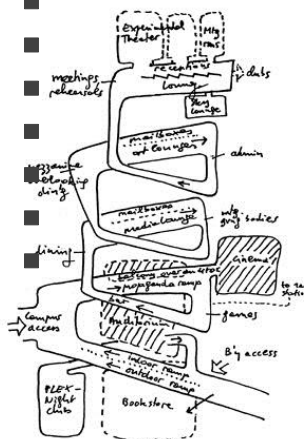 Experimental
Theater
Mtg
rms
receptions
meetings
rehearsals
clubs
lounge
Sky
Lounge
mailboxes
art lounges
admin
mezzanine
overlooking
dining
mailboxes
media lounge
mtg
gvng bodies
dining
cinema
propaganda ramp
bar
to
Campus
access
Auditorium
games
indoor ramp
outdoor ramp
B'y access
PLEX-
Night
club
Bookstore